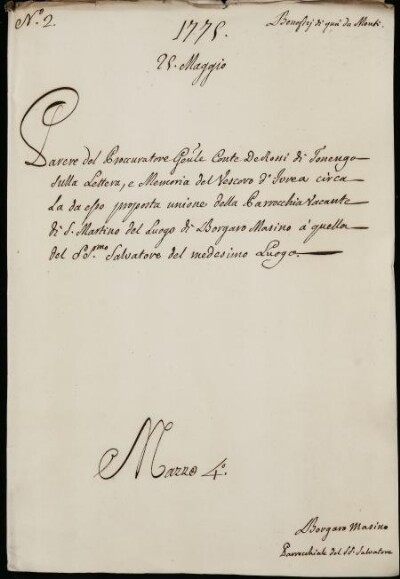 N.º 2.
Beneficj di quà da Monti.
1775.
25. Maggio
Parere del Procuratore Gñle Conte DeRossi di Tonengo
sulla Lettera, e Memoria del Vescovo d'Ivrea circa
La da esso proposta unione della Parrocchia Vacante
di S. Martino del Luogo di Borgaro Masino à quella
del SS.mo Salvatore del medesimo Luogo.
Mazzo 4.º
Borgaro Masino
Parrocchiale del SS. Salvatore